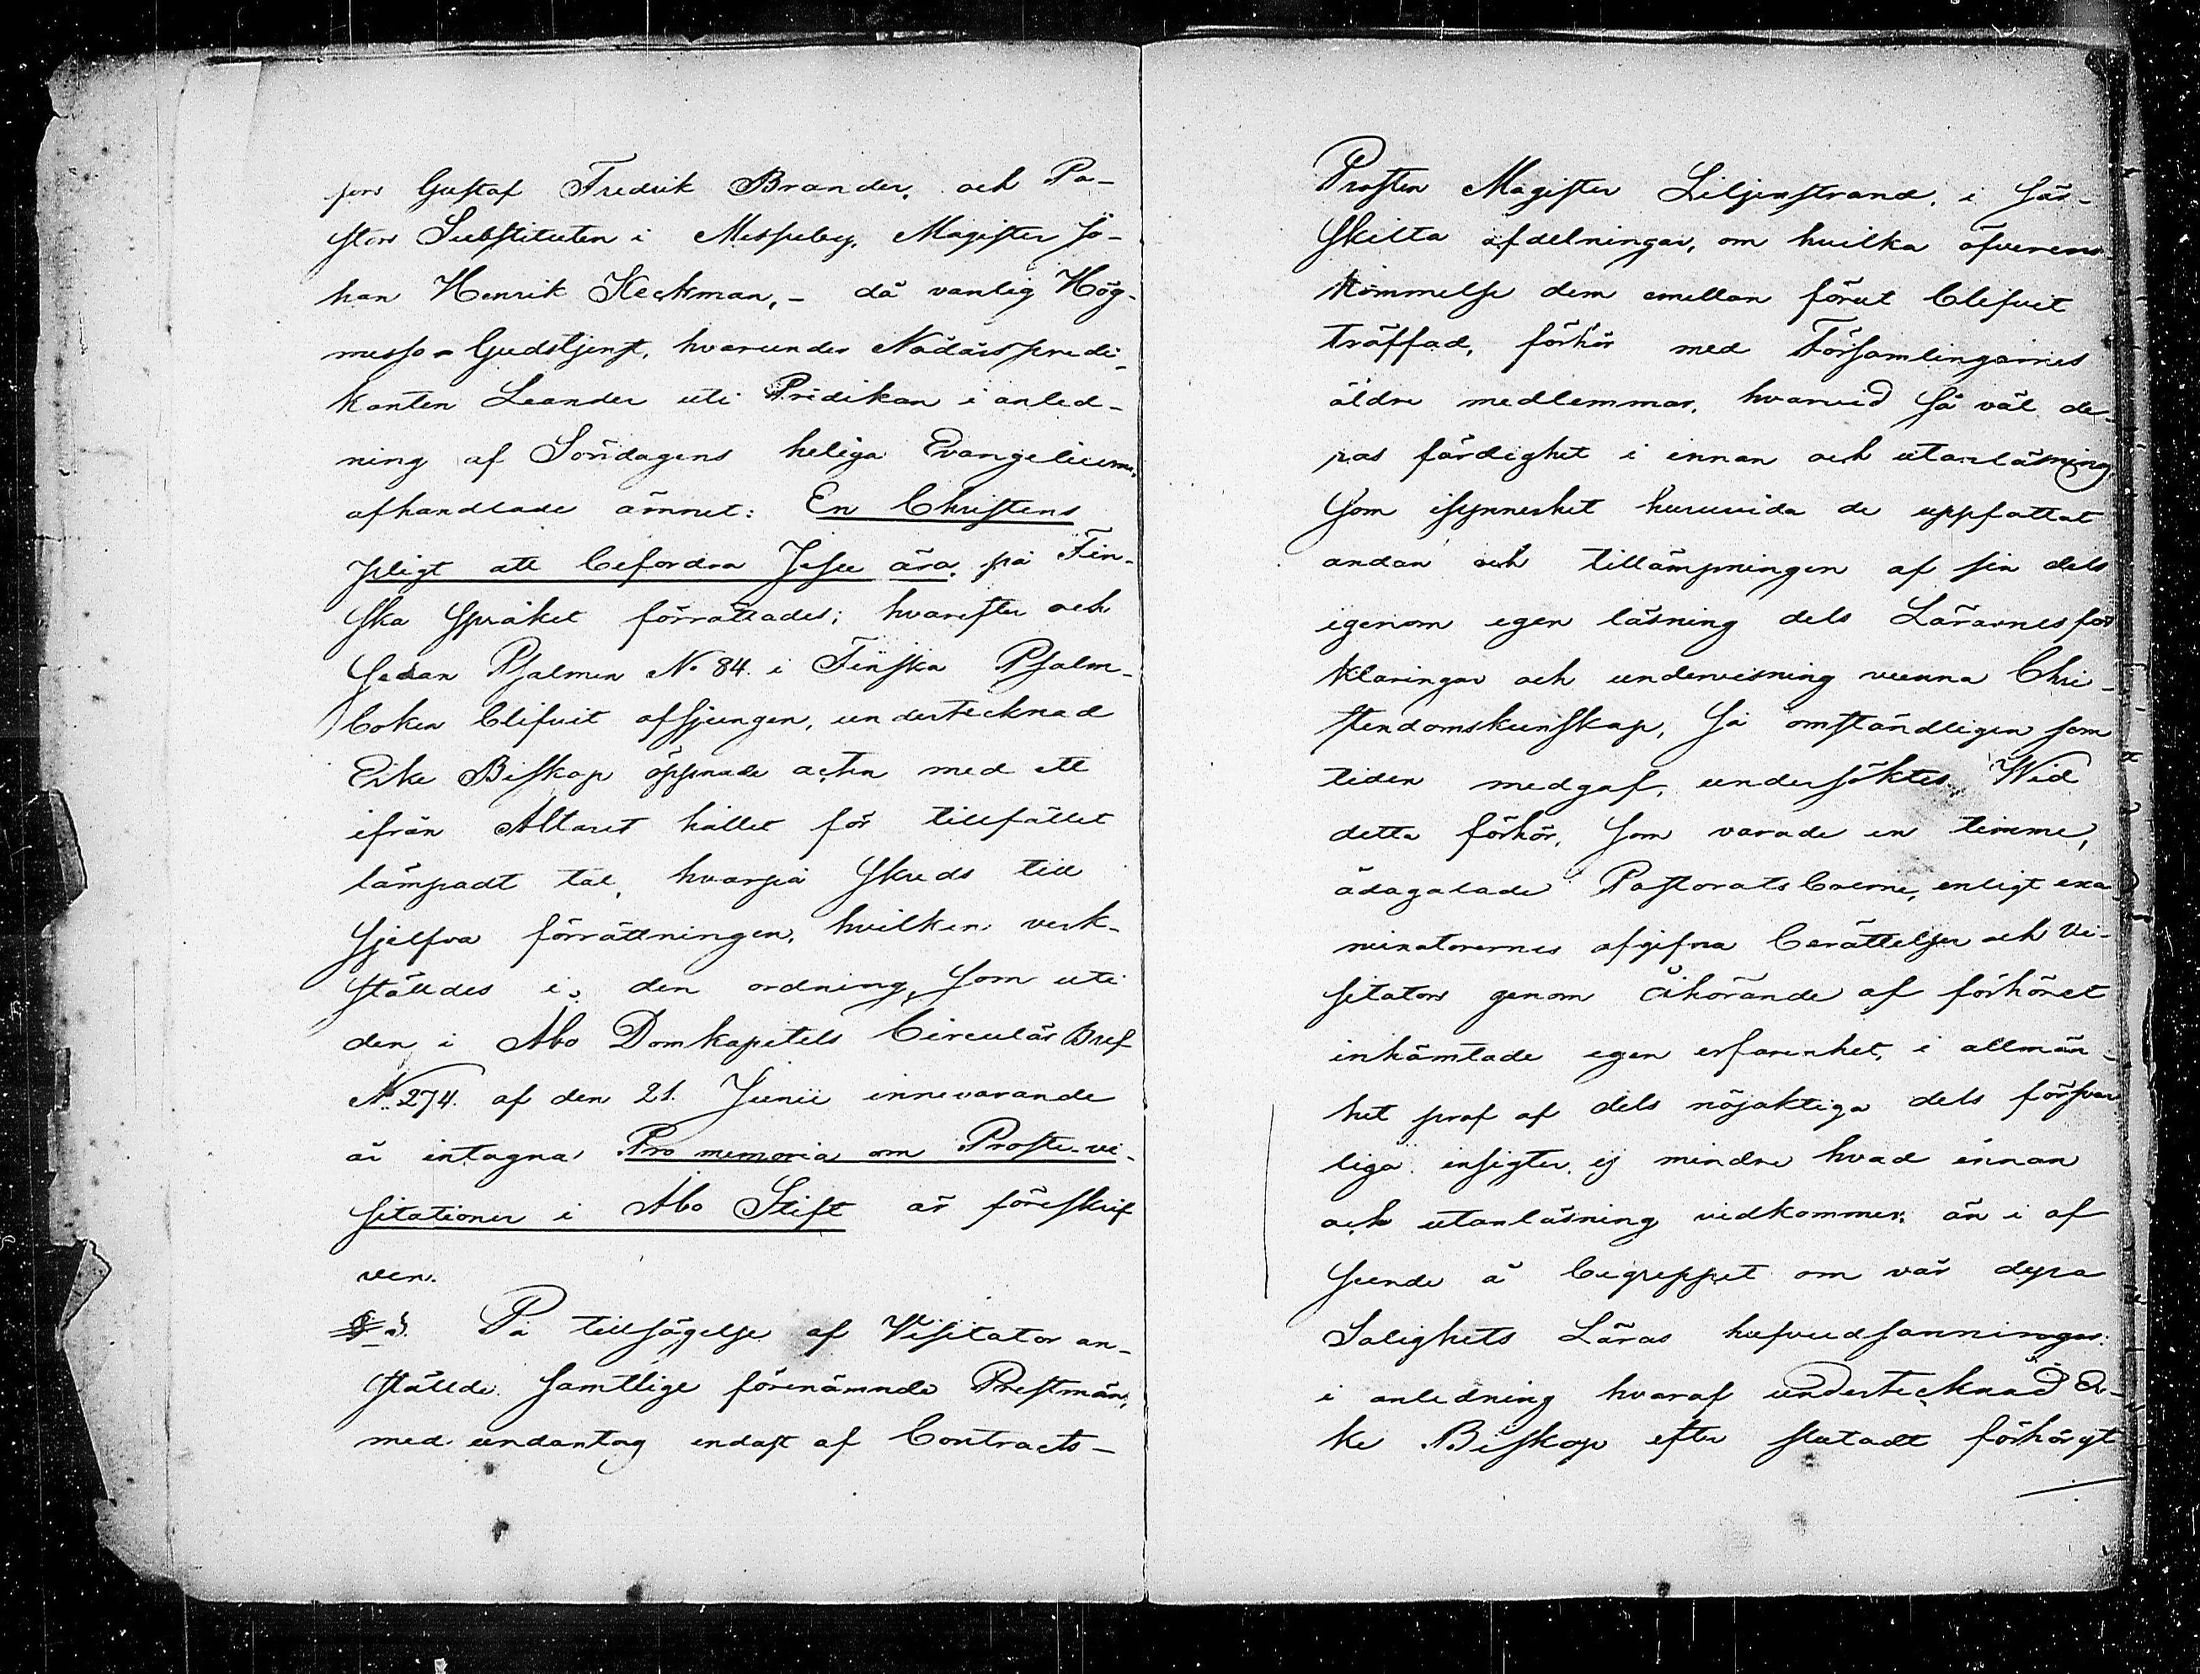 pors Gustaf Fredrik Brander, och Pa-
stors Substituten i Messuby, Magister Jo-
han Henrik Heckman, - då vanlig Hög-
messo-Gudstjenst, hvarunder Nådårspredi-
kanten Leander uti Predikan i anled-
ning af Söndagens heliga Evangelium,
afhandlade ämnet: En Christens
pligt att befordra Jesu ära, på Fin-
ska Språket förrättades; hvarefter och
Sedan Psalmen No 84. i Finska Psalm-
boken blifvit afsjungen, undertecknad
Erke Biskop öppnade acten med ett
ifrån Altaret hållet för tillfället
lämpadt tal, hvarpå Skreds till
Sjelfva förrättningen, hvilken verk-
ställdes i den ordning, Som uti
den i Åbo Domkapitels Circulär Bref
No. 274. af den 21. Junii innevarande
år intagna Pro memoria om Proste-vi-
sitationer i Åbo Stift är föreskrif
ven.
§ 3. På tillsägelse af Visitator an-
ställde Samtlige förenämnde Prestmän,
med undantag endast af Contracts-
Prosten Magister Liljenstrand, i Sär-
Skilta afdelningar, om hvilka öfverens-
kommelse dem emellan förut blifvit
träffad, förhör med Församlingarnes
äldre medlemmar, hvarvid Så väl de-
ras färdighet i innan och utanläsning,
Som isynnerhet huruvida de uppfattat
andan och tillämpningen af sin dels
igenom egen läsning dels Lärarnes för
klaringar och undervisning vunna Chri-
stendomskunskap, Så omständligen som
tiden medgaf, undersöktes. Wid
detta förhör, Som varade en timme,
ådagalade Pastoratsboerne, enligt exa
minatorernes afgifna berättelser och Vi-
sitators genom åhörande af förhöret
inhämtade egen erfarenhet, i allmän-
het prof af dels nöjaktiga dels försvar
liga insigter, ej mindre hvad innan
och utanläsning vidkommer, än i af
Seende å begreppet om vår dyra
Salighets Läras hufvudsanningar:
i anledning hvaraf undertecknad Er-
ke Biskop efter slutadt förhör yt